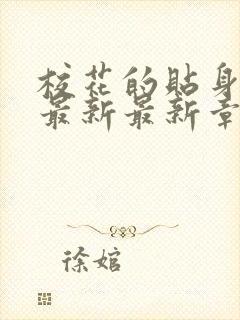 校花的貼身
最新最新章
徐婠